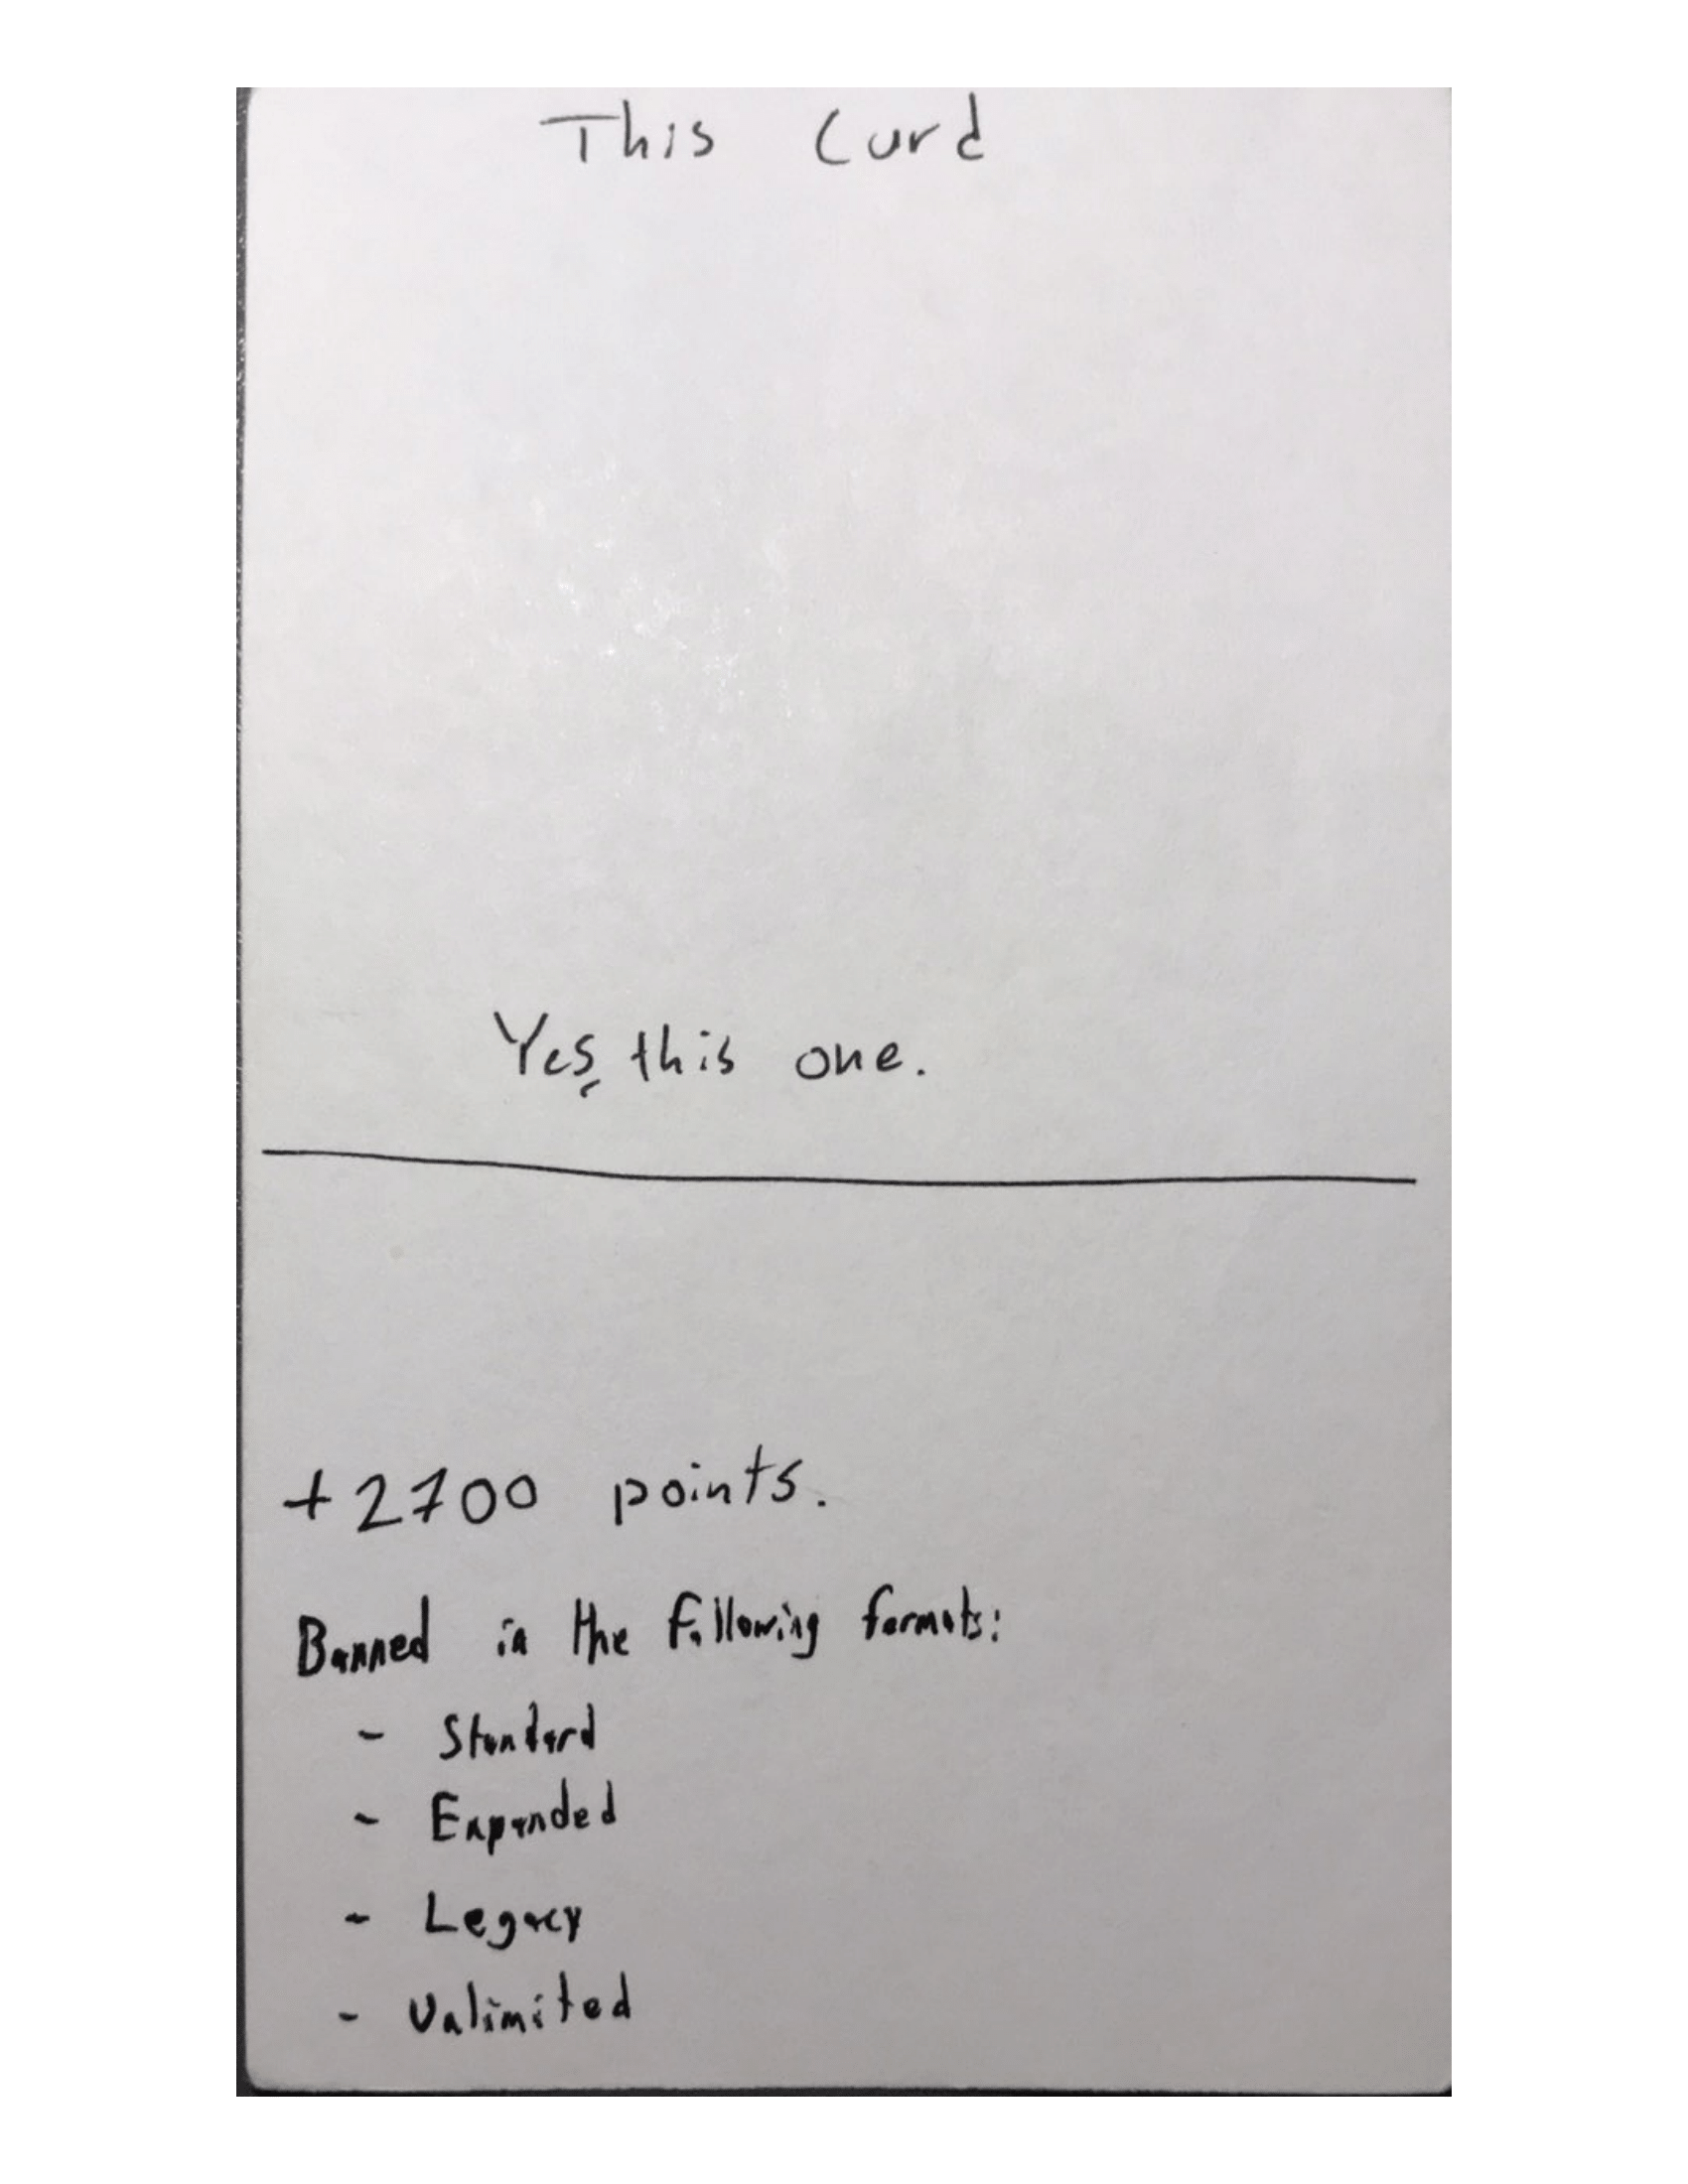 This Card
Yes, this one.
+2700 points.
Banned in the following formats:
- Standard
- Expanded
- Legacy
- Unlimited